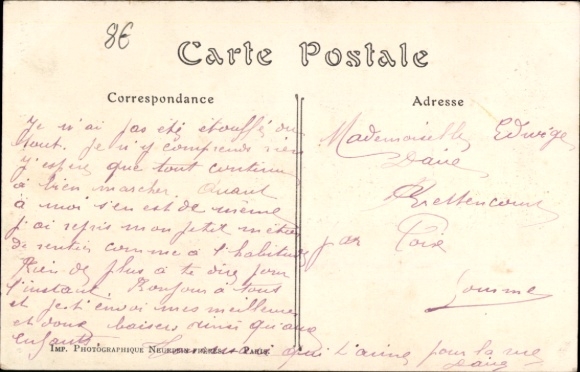 8€
Carte Postale
Correspondance
Je n'ai pas été étouffé du
tout. Je n'y comprends rien
j'espère que tout continue
à bien marcher. Quant
à moi s'en est de même
j'ai repris mon petit métier
de rentier comme à l'habitude
Rien de plus à te dire pour
l'instant. Bonjour à tous
et je t'envoi mes meilleures
et doux baisers ainsi qu'aux
enfants.
qui t'aime pour la vie
Daire
Adresse
Mademoiselle Edwige
Daire
Bettencourt
par Poix
Somme
IMP. PHOTOGRAPHIQUE PARIS